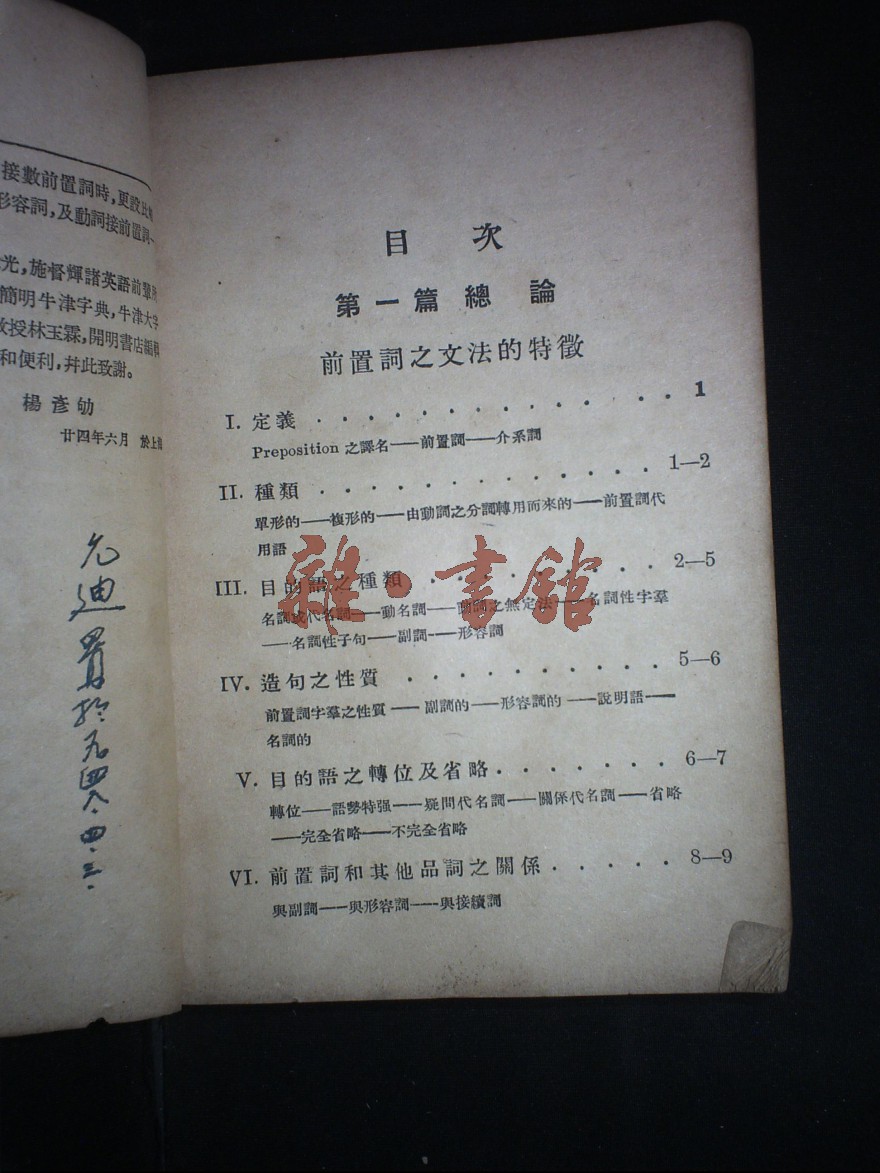 接數前置詞時,更設比
形容詞,及動詞接前置詞一
光,施督輝諸英語前輩
簡明牛津字典,牛津大字
教授林玉霖,開明書店編
和便利,幷此致謝。
楊彥劬
廿四年六月 於上
允迪
於
九四八・四・三・
目 次
第一篇 總 論
前置詞之文法的特徵
I. 定義 . . . . . . . . . . . . . 1
Preposition 之譯名——前置詞——介系詞
II. 種類 . . . . . . . . . . . . . 1—2
單形的——複形的——由動詞之分詞轉用而來的——前置詞代
用語
III. 目的語之種類 . . . . . . . . . 2—5
名詞或代名詞——動名詞——動詞之無定法——名詞性字羣
——名詞性子句——副詞——形容詞
IV. 造句之性質 . . . . . . . . . . 5—6
前置詞字羣之性質——副詞的——形容詞的——說明語——
名詞的
V. 目的語之轉位及省略 . . . . . . . 6—7
轉位——語勢特强——疑問代名詞——關係代名詞——省略
——完全省略——不完全省略
VI. 前置詞和其他品詞之關係 . . . . . 8—9
與副詞——與形容詞——與接續詞
雜・書館